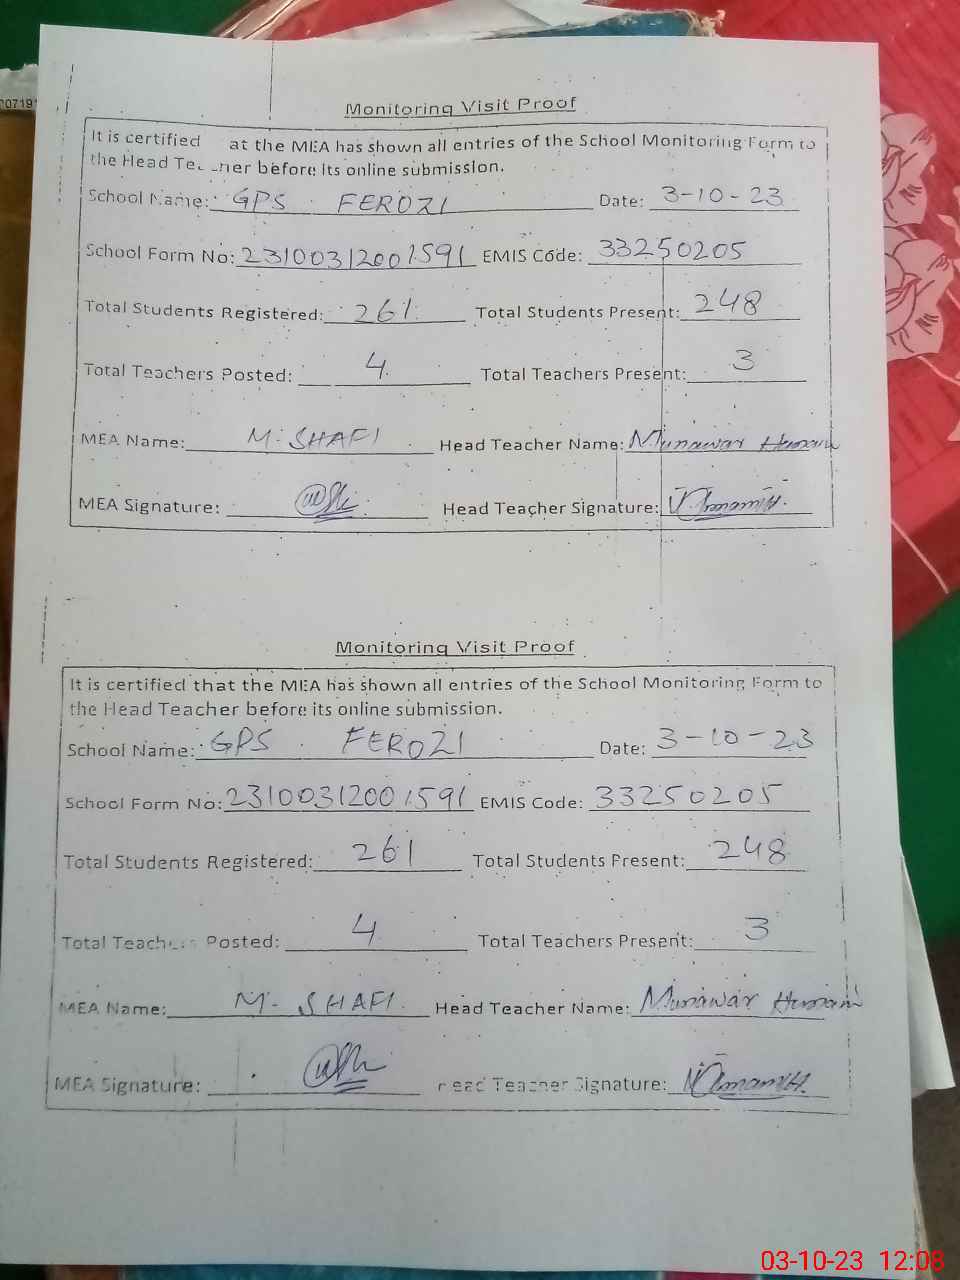 00719
Monitoring Visit Proof
It is certified at the MEA has shown all entries of the School Monitoring Form to
the Head before its online submission.
School Name: GPS FEROZI Date: 3-10-23
School Form No: 23100312001591 EMIS Code: 33250205
Total Students Registered: 261 Total Students Present: 248
Total Teachers Posted: 4 Total Teachers Present: 3
MEA Name: M. SHAFI Head Teacher Name: Munawar
MEA Signature: Head Teacher Signature:
Monitoring Visit Proof
It is certified that the MEA has shown all entries of the School Monitoring Form to
the Head Teacher before its online submission.
School Name: GPS FEROZI Date: 3-10-23
School Form No: 23100312001591 EMIS Code: 33250205
Total Students Registered: 261 Total Students Present: 248
Total Teachers Posted: 4 Total Teachers Present: 3
MEA Name: M. SHAFI Head Teacher Name: Munawar
MEA Signature: Head Teacher Signature:
03-10-23 12:08